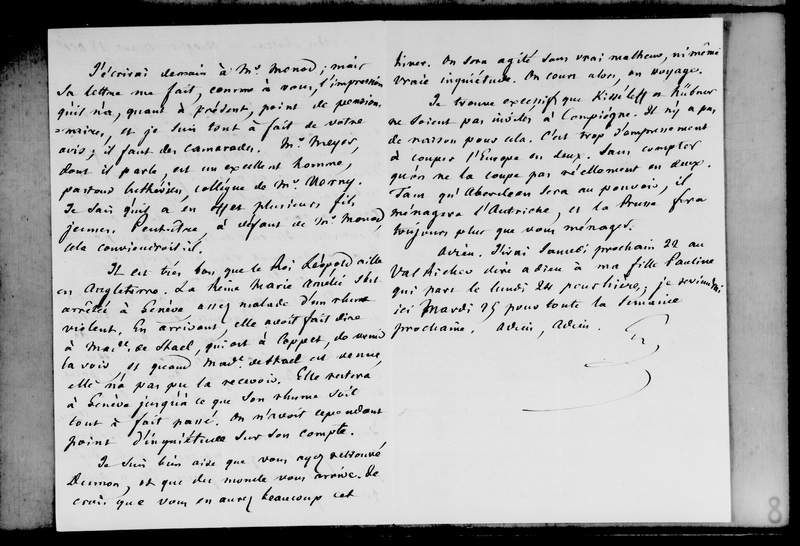 J'écrirai demain à Mr. Monod; mais
sa lettre me fait, comme à vous, l'impression
qu'il n'a, quant à présent, point de pension-
=naires, et je suis tout à fait de votre
avis; il faut des camarades. Mr. Meyer,
dont il parle, est un excellent homme,
pasteur luthérien, collègue de Mr. Verny.
Je sais qu'il a en effet plusieurs fils
jeunes. Peut-être, à défaut de Mr. Monod,
cela conviendroit-il.
Il est très bon que le Roi Léopold aille
en Angleterre. La Reine Marie Amélie s'est
arrêtée à Genève assez malade d'un rhume
violent. En arrivant, elle avoit fait dire
à Made. de Stael, qui est à Coppet, de venir
la voir, et quand Made. de Stael est venue,
elle n'a pas pu la recevoir. Elle restera
à Genève jusqu'à ce que son rhume soit
tout à fait passé. On n'avoit cependant
point d'inquiétude sur son compte.
Je suis bien aise que vous ayez retrouvé
Dumon, et que du monde vous arrive. Je
crois que vous en aurez beaucoup cet
hiver. On sera agité sans vrai malheur, ni même
vraie inquiétude. On court alors, on voyage.
Je trouve excessif que Kisséleff et Hübner
ne soient pas invités à Compiègne. Il n'y a pas
de raison pour cela. C'est trop d'empressement
à couper l'Europe en deux. Sans compter
qu'on ne la coupe pas réellement en deux.
Tant qu'Aberdeen sera au pouvoir, il
ménagera l'Autriche, et la Prusse sera
toujours plus que vous ménagée.
Adieu. J'irai Samedi prochain 22 au
Val Richer dire adieu à ma fille Pauline
qui part le lundi 24 pour hière; je reviendrai
ici Mardi 25 pour toute la semaine
prochaine. Adieu, Adieu.
G
8